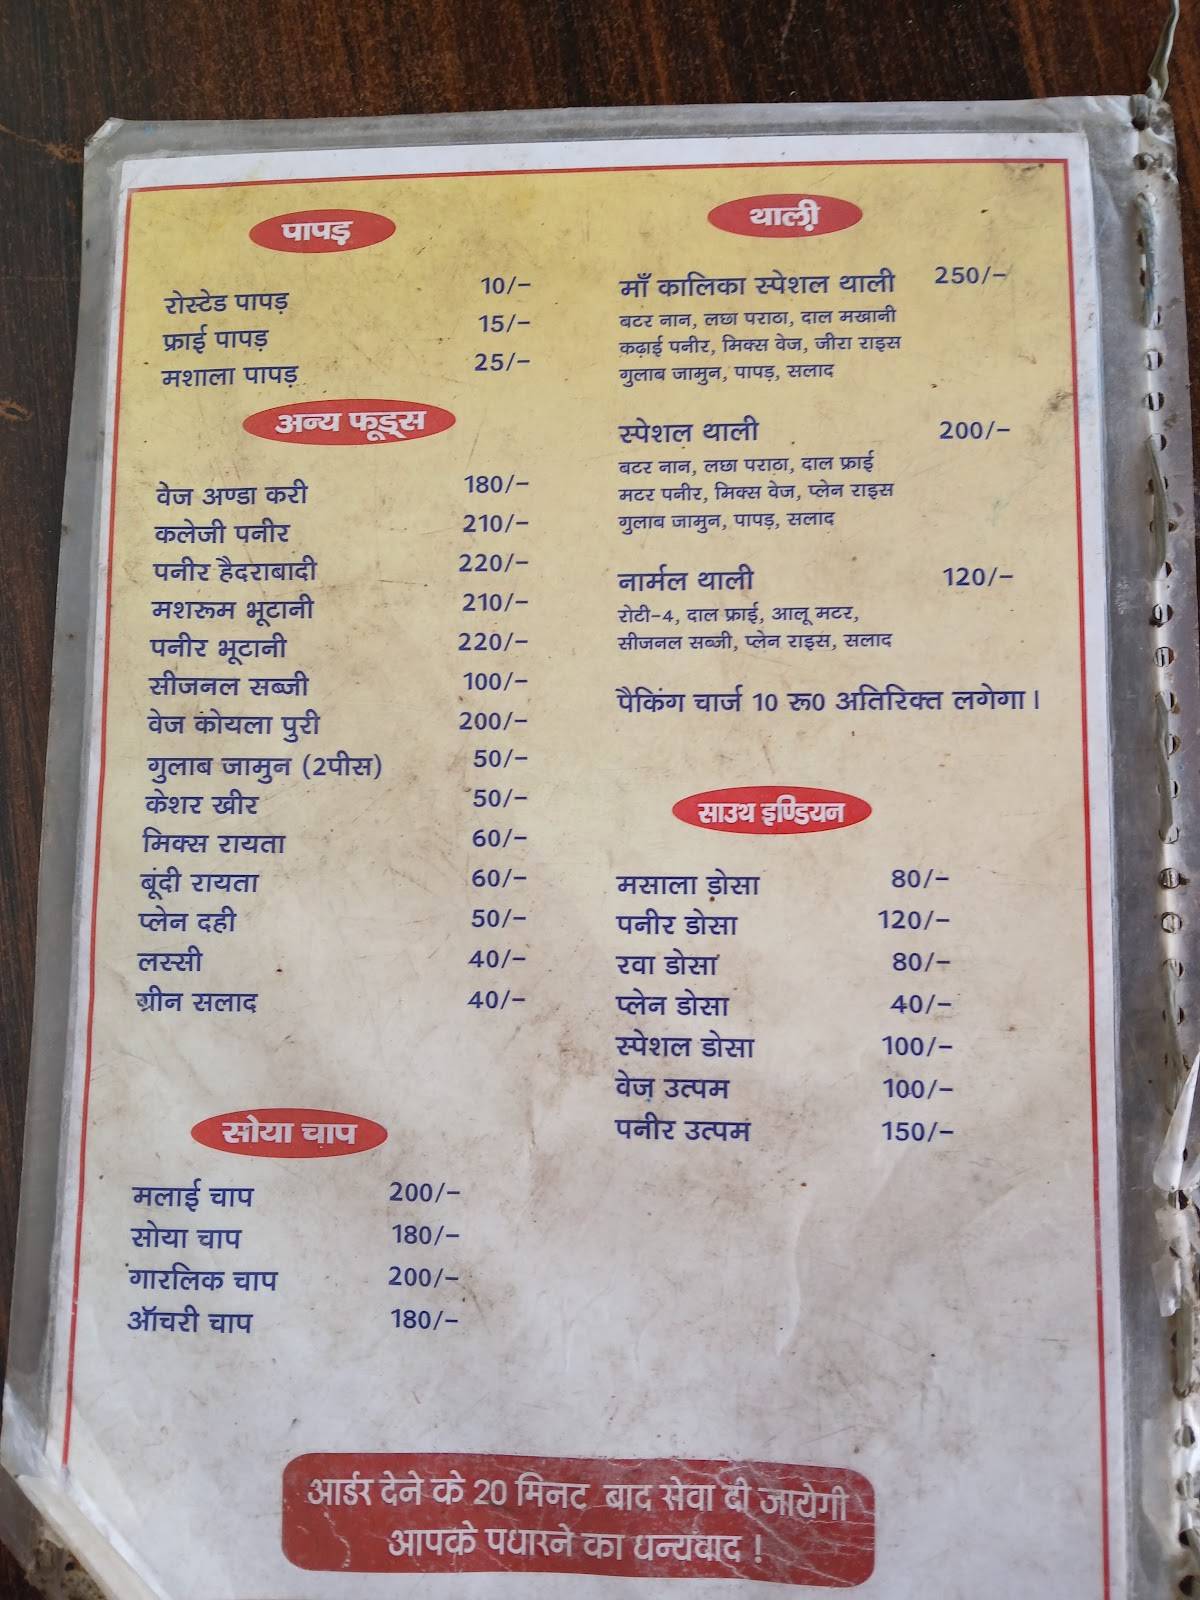 पापड़
रोस्टेड पापड़ 10/-
फ्राई पापड़ 15/-
मशाला पापड़ 25/-
अन्य फूड्स
वेज अण्डा करी 180/-
कलेजी पनीर 210/-
पनीर हैदराबादी 220/-
मशरूम भूटानी 210/-
पनीर भूटानी 220/-
सीजनल सब्जी 100/-
वेज कोयला पुरी 200/-
गुलाब जामुन (2पीस) 50/-
केशर खीर 50/-
मिक्स रायता 60/-
बूंदी रायता 60/-
प्लेन दही 50/-
लस्सी 40/-
ग्रीन सलाद 40/-
सोया चाप
मलाई चाप 200/-
सोया चाप 180/-
गारलिक चाप 200/-
ऑचरी चाप 180/-
थाली
माँ कालिका स्पेशल थाली 250/-
बटर नान, लछा पराठा, दाल मखानी
कढ़ाई पनीर, मिक्स वेज, जीरा राइस
गुलाब जामुन, पापड़, सलाद
स्पेशल थाली 200/-
बटर नान, लछा पराठा, दाल फ्राई
मटर पनीर, मिक्स वेज, प्लेन राइस
गुलाब जामुन, पापड़, सलाद
नार्मल थाली 120/-
रोटी-4, दाल फ्राई, आलू मटर,
सीजनल सब्जी, प्लेन राइस, सलाद
पैकिंग चार्ज 10 रू0 अतिरिक्त लगेगा।
साउथ इण्डियन
मसाला डोसा 80/-
पनीर डोसा 120/-
रवा डोसा 80/-
प्लेन डोसा 40/-
स्पेशल डोसा 100/-
वेज उत्पम 100/-
पनीर उत्पम 150/-
आर्डर देने के 20 मिनट बाद सेवा दी जायेगी
आपके पधारने का धन्यवाद !